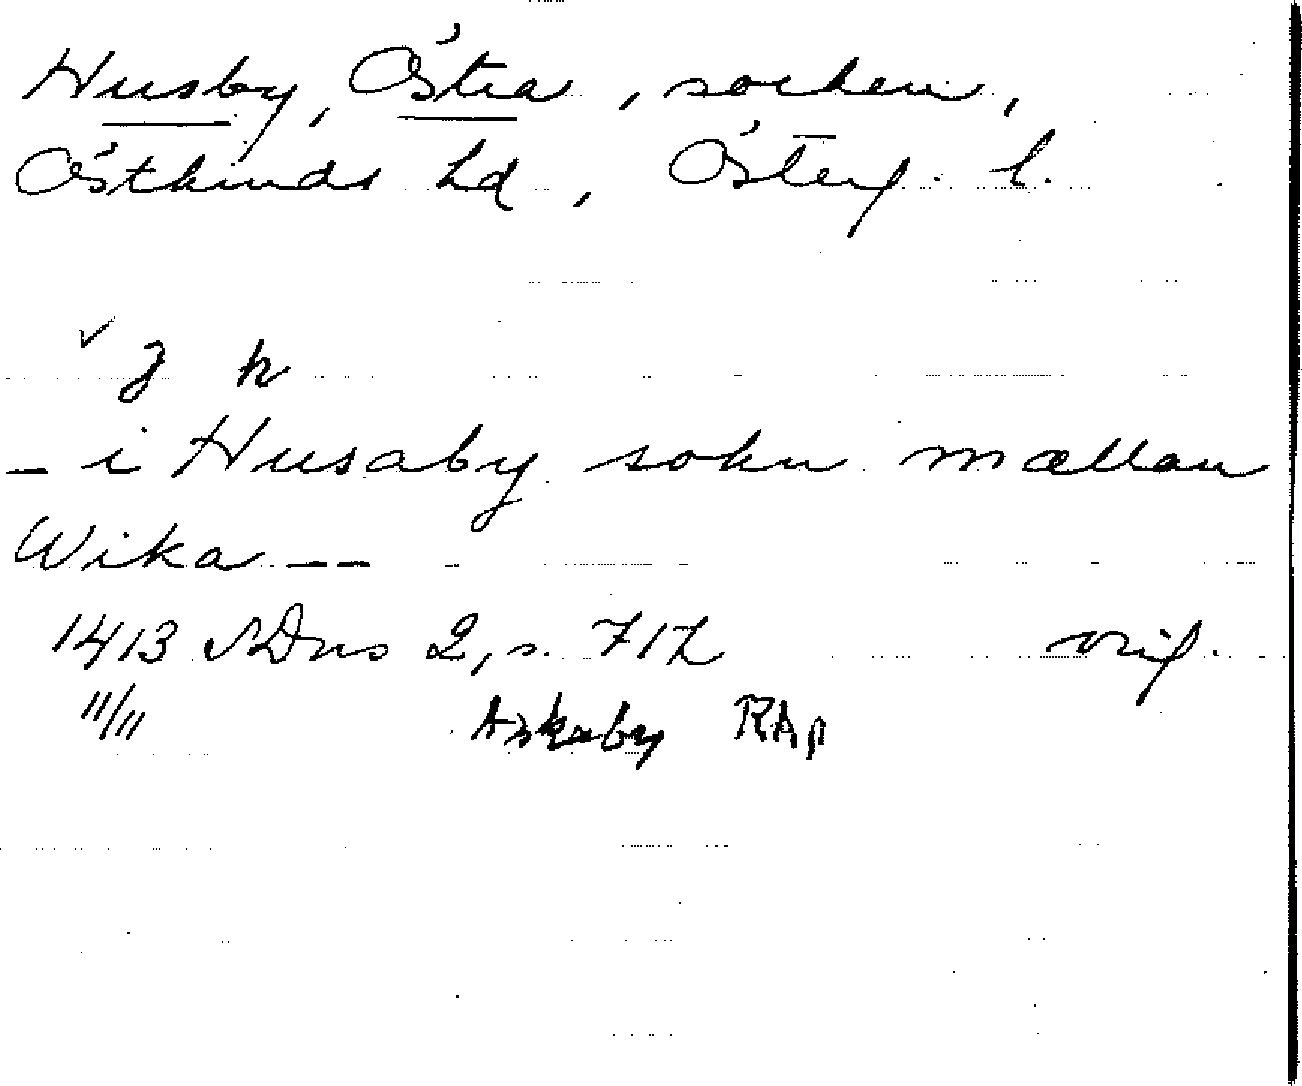 Husby, Östra, socken,
Östkinds hd, Österg. l.
i Husaby sokn mællan
Wika --
1413 SDns 2, s. 717 orig.
11/11 Askaby RAp